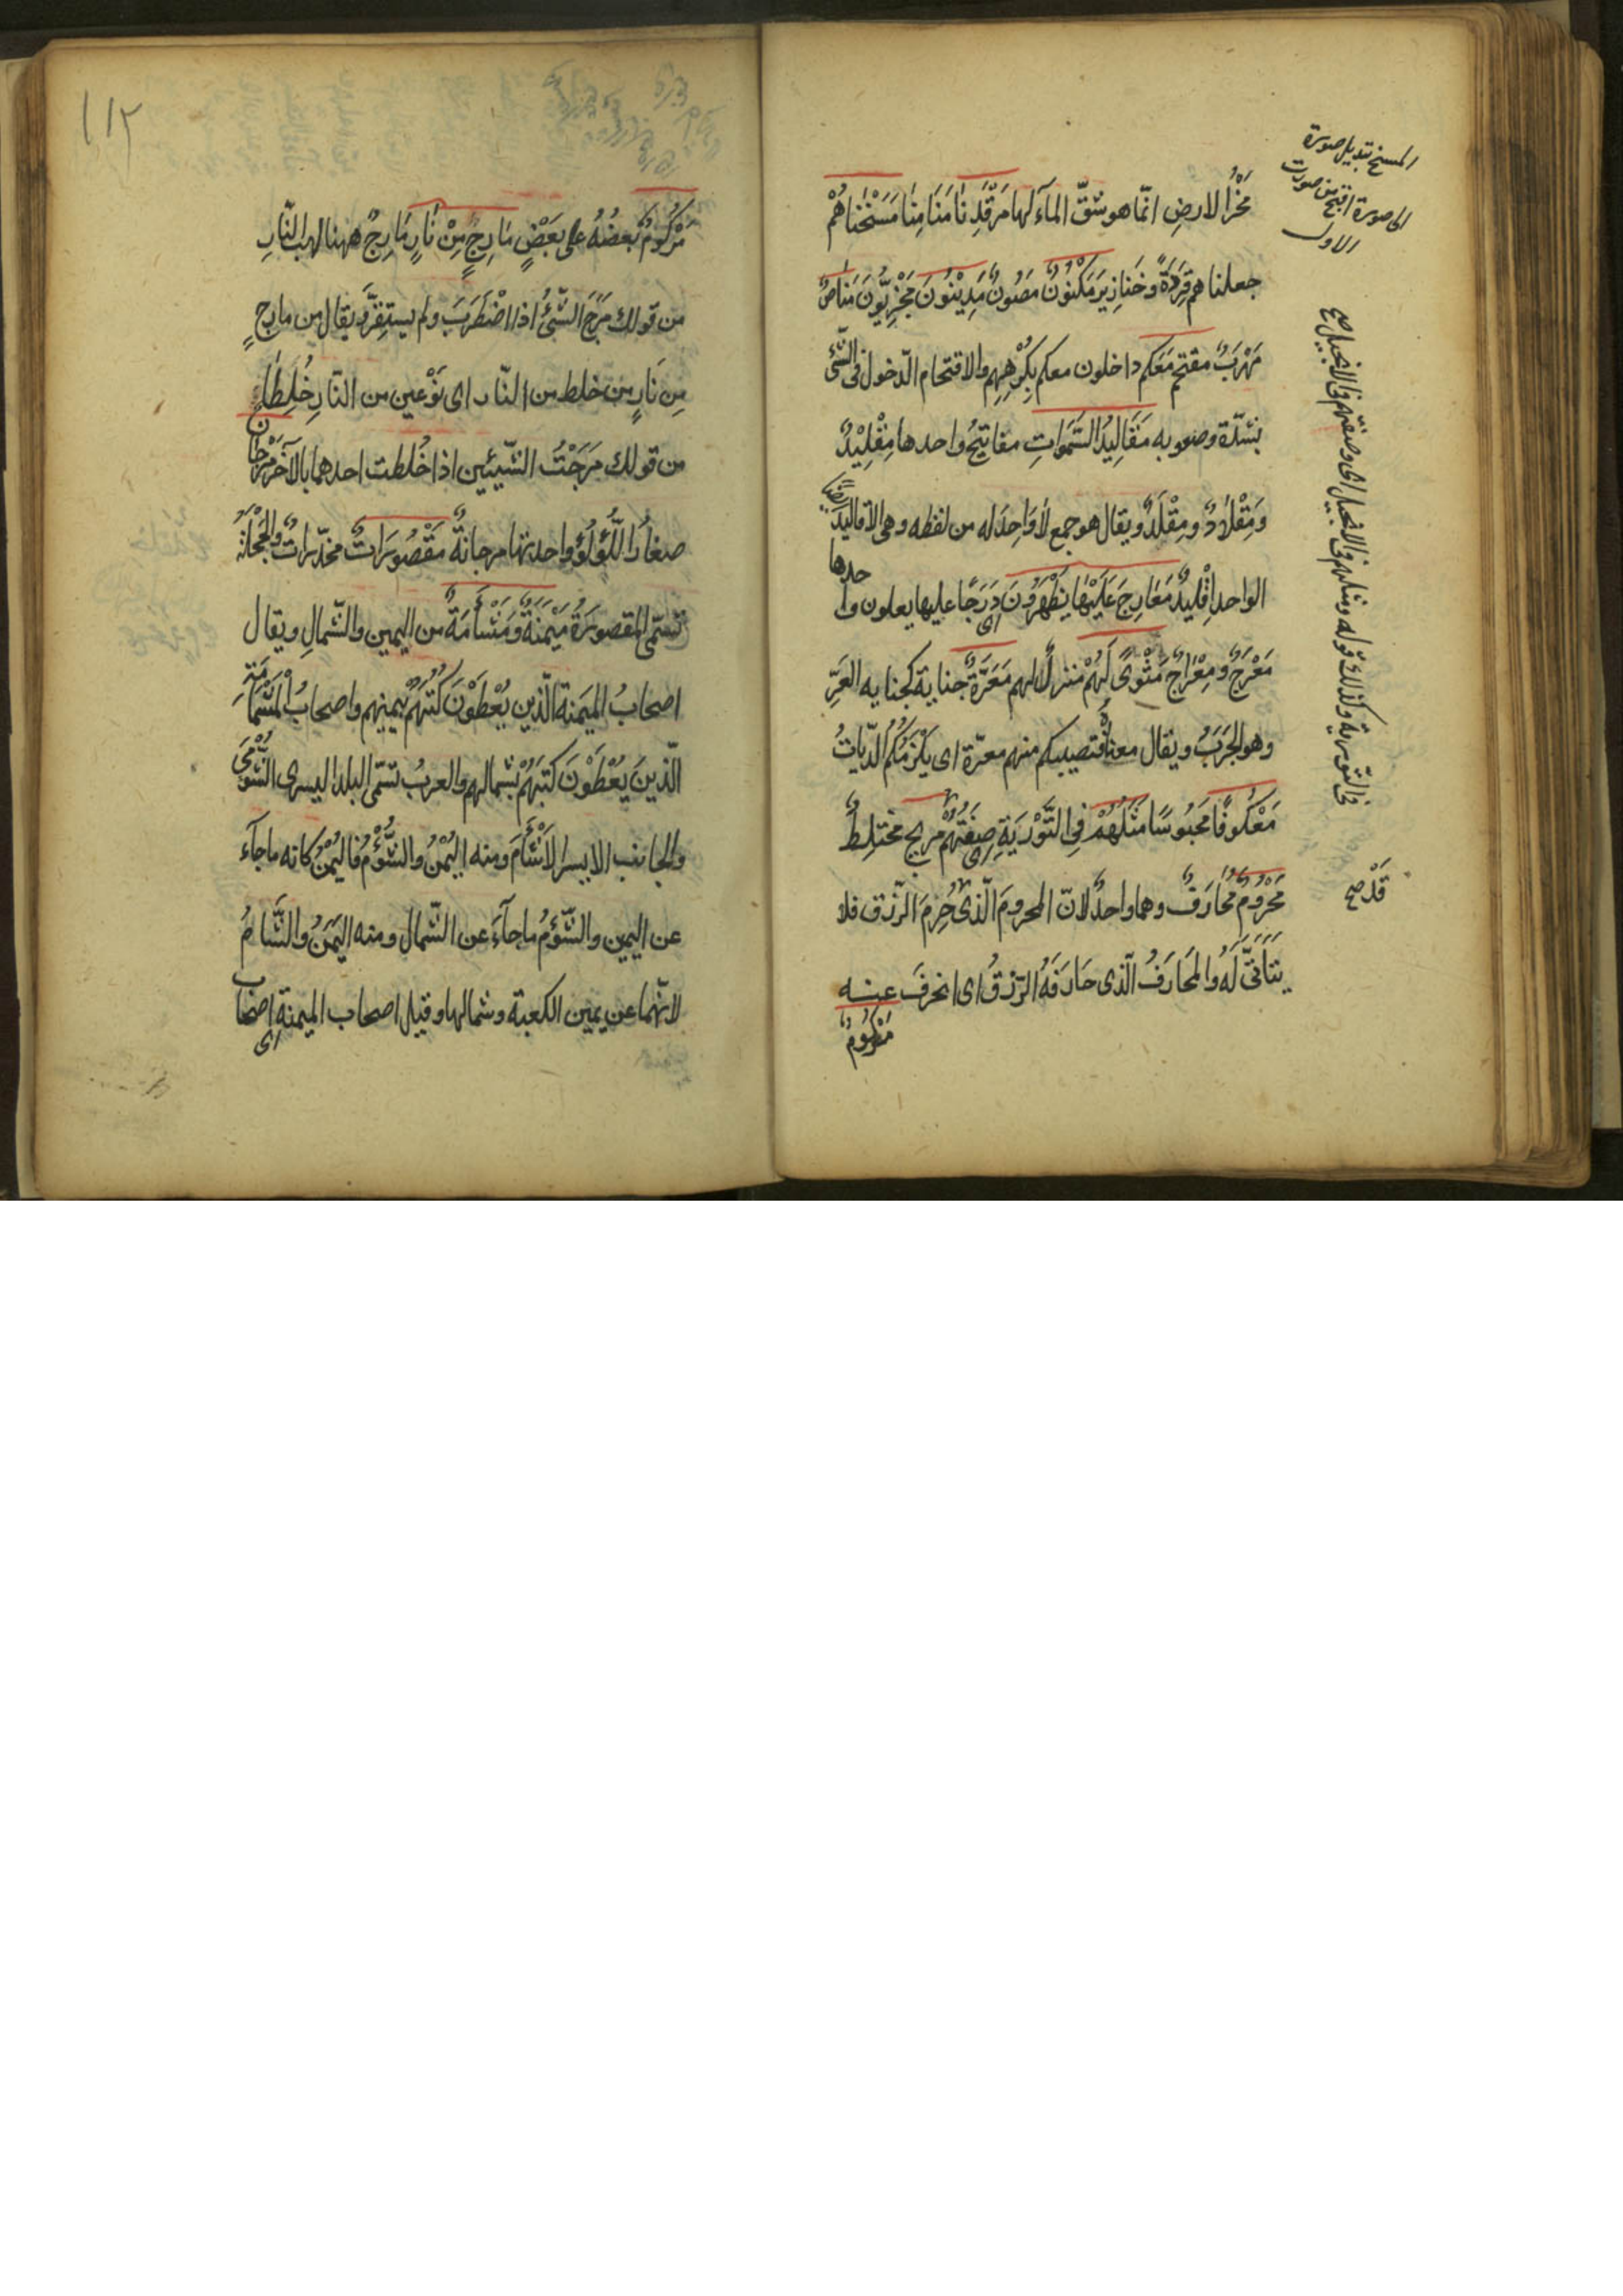 مَخْرُ الارضِ انّما هو شقّ المآء لها مَرْقَدِنَا مَنَامِنَا مَسَخْنَاهُمْ
جعلناهم قِرَدَةً وخَنَازِيرَ مَكْنُونٌ مَصُونٌ مَدِيْنُونَ مَجْزِيُّونَ مَنَاصٌ
مَهْرَبٌ مقتحم مَعَكم داخلون معكم بِكُرْهِهِم والاقتحام الدّخول فى الشّئ
بشدّة وصعوبه مَقَالِيدُ السَّمٰوَاتِ مفاتيحُ واحدها مِقْلِيْدٌ
وَمِقْلَادٌ ومِقْلَدٌ ويقال هو جمع لَا وَاحِدَ له من لفظه وهى الاقاليد ايضا
الواحد اِقْلِيدٌ مَعَارِجَ عَلَيْهَا يَظْهَرُونَ اى دَرَجًا عليها يعلون واحدها
مَعْرَجٌ ومِعْرَاجٌ مَثْوًى لَهُمْ منزلٌ لهم مَعَرَّةٌ جناية كجنايه العَرِّ
وهو الجَرَبُ ويقال معناهُ فتصيبكم منهم معرّة اى يَلْزَمُكُمُ الدّياتُ
مَعْكُوفًا مَحبُوسًا مَثَلُهُمْ فِى التَّوْرٰيةِ اى صِفَتُهُمْ مريج مختلِطٌ
مَحْرُومٌ مُحَارَفٌ وهما واحدٌ لانّ المحرومَ الّذى حُرِمَ الرّزق فلا
يَتَأَتَّى لَهُ والمحَارَفُ الّذى حَارَفَهُ الرّزقُ اى انحرفَ عنه
مَرْكُومٌ
المسخ تبديل صورة
الى صورة اقبح من صورت
الاول
فى التّورية وكذلك قوله ومثلهم فى الانجيل اى وصفتهم فى الانجيل صح
قَدْ صح
١١٢
مَرْكُومٌ بَعضُهُ على بَعْضٍ مَارِجٍ مِنْ نَارٍ مَارِجٌ ههنا لهب النّارِ
من قولك مَرَجَ الشّئُ اذا اضْطَرَبَ ولم يستقِرَّ ويقال من مارجٍ
مِن نَارٍ من خلط من النّار اى نَوْعين من النّارِ خُلِطَا
من قولك مَرَجْتُ الشّيئين اذا خُلطت احدهما بالآخر مَرْجَانٌ
صغارُ اللُّؤلُؤ واحدتها مرجانةٌ مَقْصُورَاتٌ مخدّراتٌ والحَجَلَةُ
تسمّى المقصورَةَ مَيْمَنَةٌ وَمَشْأَمَةٌ من اليمين والشّمالِ ويقال
اصحابُ الميمَنة الّذين يُعْطَوْنَ كُتُبَهُمْ بيمينهم واصحابُ المَشْأَمَةِ
الّذينَ يُعْطَوْنَ كتبَهُمْ بشمالهم والعربُ تسمّى اليد اليسرى الشُّؤْمَى
والجانب الايسر الاَشْأَمَ ومنه اليُمْنُ والشُّؤْمُ فاليُمْنُ كانه ماجآء
عن اليمين والشّؤمُ ماجآءَ عن الشّمال ومنه اليَمَنُ والشَّامُ
لانّهما عن يمين الكعبة وشمالها وقيل اصحاب الميمنة اى اصحاب